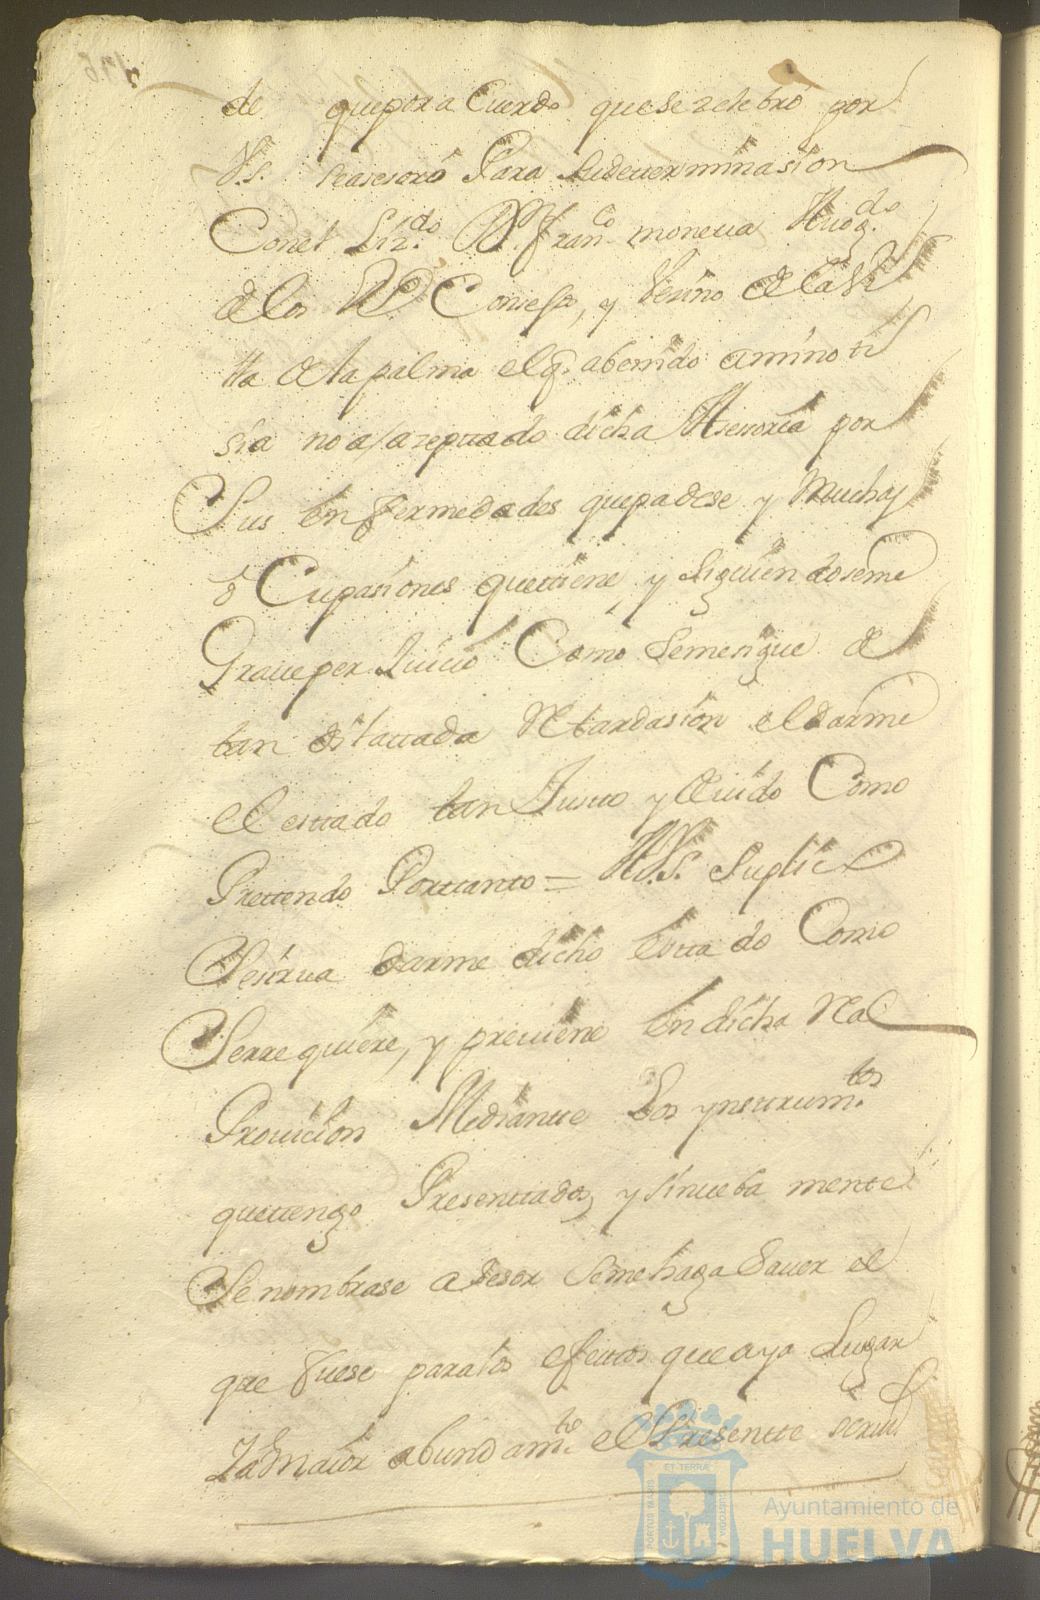 de queporaCuerdo quesezelebró por
V.S. seasesoró Para sudeterminasion
Conel Liz.do Dn. Fran.co moneua Auog.do
delos RR Consejos, y Vezino de la Vi
lla de la palma el q. abenido aminoti
sia no a/azeptado dicha Asesoria por
Sus Enfermedades quepadese y Muchas
oCupasiones quetiene, y siguiendoseme
GraueperJuicio Como semesigue de
tan dilatada Retardasion eldarme
el estado tan Justo y deuido Como
Pretendo Portanto = A V.S. Suplico
Sesirua darme dicho Estado Como
Serrequiere, y preuiene En dicha Real
Prouicion Mediante Los ynstrum.tos
quetengo Presentados, y sinueba mente
Senombrase asesor semehaga Sauer el
que fuese paralos efectos que aya Lugar
Ya Maior abundam.to el Presente scriu
ET TERRAE
PORTUS MARIS
CUSTODIA
Ayuntamiento de
HUELVA